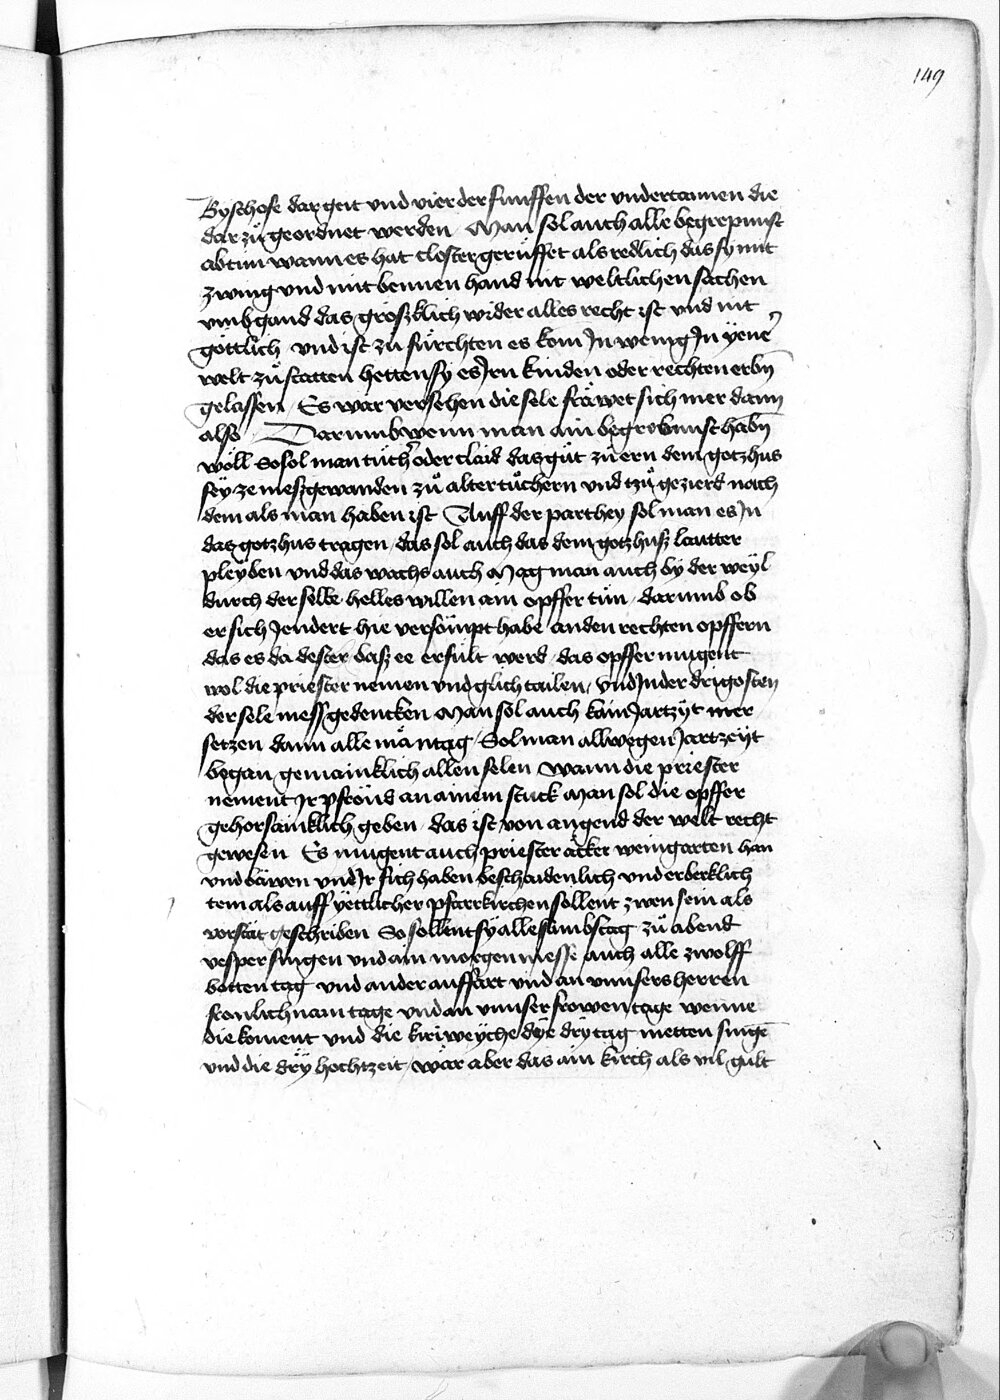 149
Byschofe dar geit vnd vier der funffen der vndertannen die
dar zu geordnet werden Man sol auch alle begrepnust
abtun wann es hat closter gerüffet als redlich das sy mit
zwing vnd mit bennen hand mit weltlichen sachen
vmb gand das großklich wider alles recht ist vnd nit
göttlich vnd ist zu fürchten es kom In wenig In yener
welt zu statten hetten sy es Jrn kinden oder rechten erbn
gelassen Es war versehen die sele fräwet sich mer dann
also Darumb wenn man ain begrebnust habn
wöll So sol man tücher oder claid das güt zu ern dem gotzhus
sey ze meßgewanden zu altertüchern vnd tzu gezierd nach
dem als man haben ist Auff der parthey sol man es In
das gotzhus tragen das sol auch das dem gotzhuß lautter
pleyben vnd das wachs auch Mag man auch by der weyl
durch der selbe helles willen ain opffer tun darumb ob
er sich Jendert hie versömpt habe an den rechten opffern
das es da dester daß ee erfült werd das opffer mugent
wol die priester nemen vnd glich tailen vnd In der drigosten
der sele mess gedencken Man sol auch kain Jartzyt mer
setzen dann alle mäntag Sol man allwegen Jartzeyt
began gemainklich allen selen wann die priester
nement Jr pfrönd an ainem stuck Man sol die opffer
gehorsamklich geben das ist von angend der welt recht
gewesen Es mugent auch priester äcker weingarten han
vnd bäwen vnd Jr fich haben beschaidenlich vnd erberklich
tem als auff yettlicher pfarrkirchen sollent zwen sein als
vorstät geschriben So sollent sy alle sambstag zu abend
vesper singen vnd am morgen messe auch alle zwolff
botten tag vnd an der auffart vnd an vnnsers herren
fronlichnam tage vnd an vnnser frowen tage wenne
die koment vnd die kirweyche dye dry tag metten singe
vnd die dry hochtzeit wär aber das ain kirch als vil gult